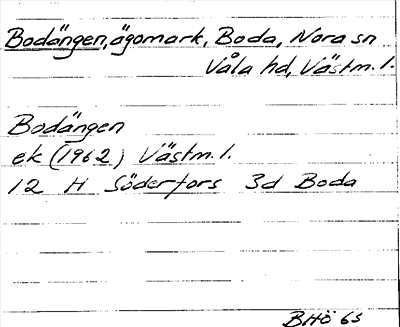 Bodängen, ägomark, Boda, Nora sn
Våla hd, Västm. l.
Bodängen
ek (1962) Västm. l.
12 H Söderfors 3d Boda
BHÖ 65